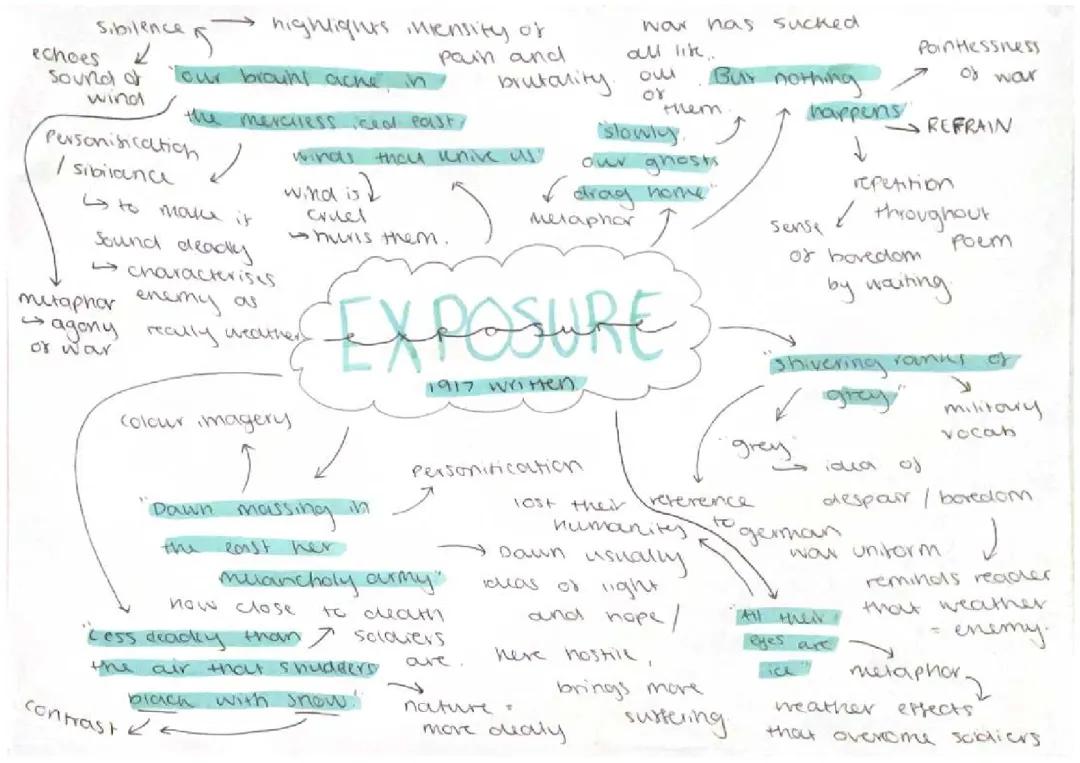 sibilence
echoes
sound of
wind
highlights intensity of
pain and
brutality.
"our brains ache, in
the merciless iced east
winds that knive us"
Personification
/ sibilance
↳ to make it
sound deadly
↳ characterises
enemy as
really weather
wind is
cruel
→ hurts them.
metaphor
↳ agony
of war
war has sucked
all life
out
of
them.
"slowly
our ghosts
drag home"
metaphor
"But nothing
happens"
Pointlessness
of war
REFRAIN
repetition
throughout
poem
sense
of boredom
by waiting.
EXPOSURE
exposure
1917 written
"shivering ranks of
grey"
military
vocab
"grey"
→ idea of
despair / boredom
reminds reader
that weather
= enemy.
reference
to
german
war uniform
colour imagery
"Dawn massing in
the east her
melancholy army"
Personification
Dawn usually
ideas of light
and hope /
here hostile,
brings more
suffering.
lost their
humanity
"All their
eyes are
ice"
metaphor
weather effects
that overcome soldiers
how close to death
soldiers
are.
"Less deadly than
the air that shudders
black with snow."
nature =
more deadly
contrast